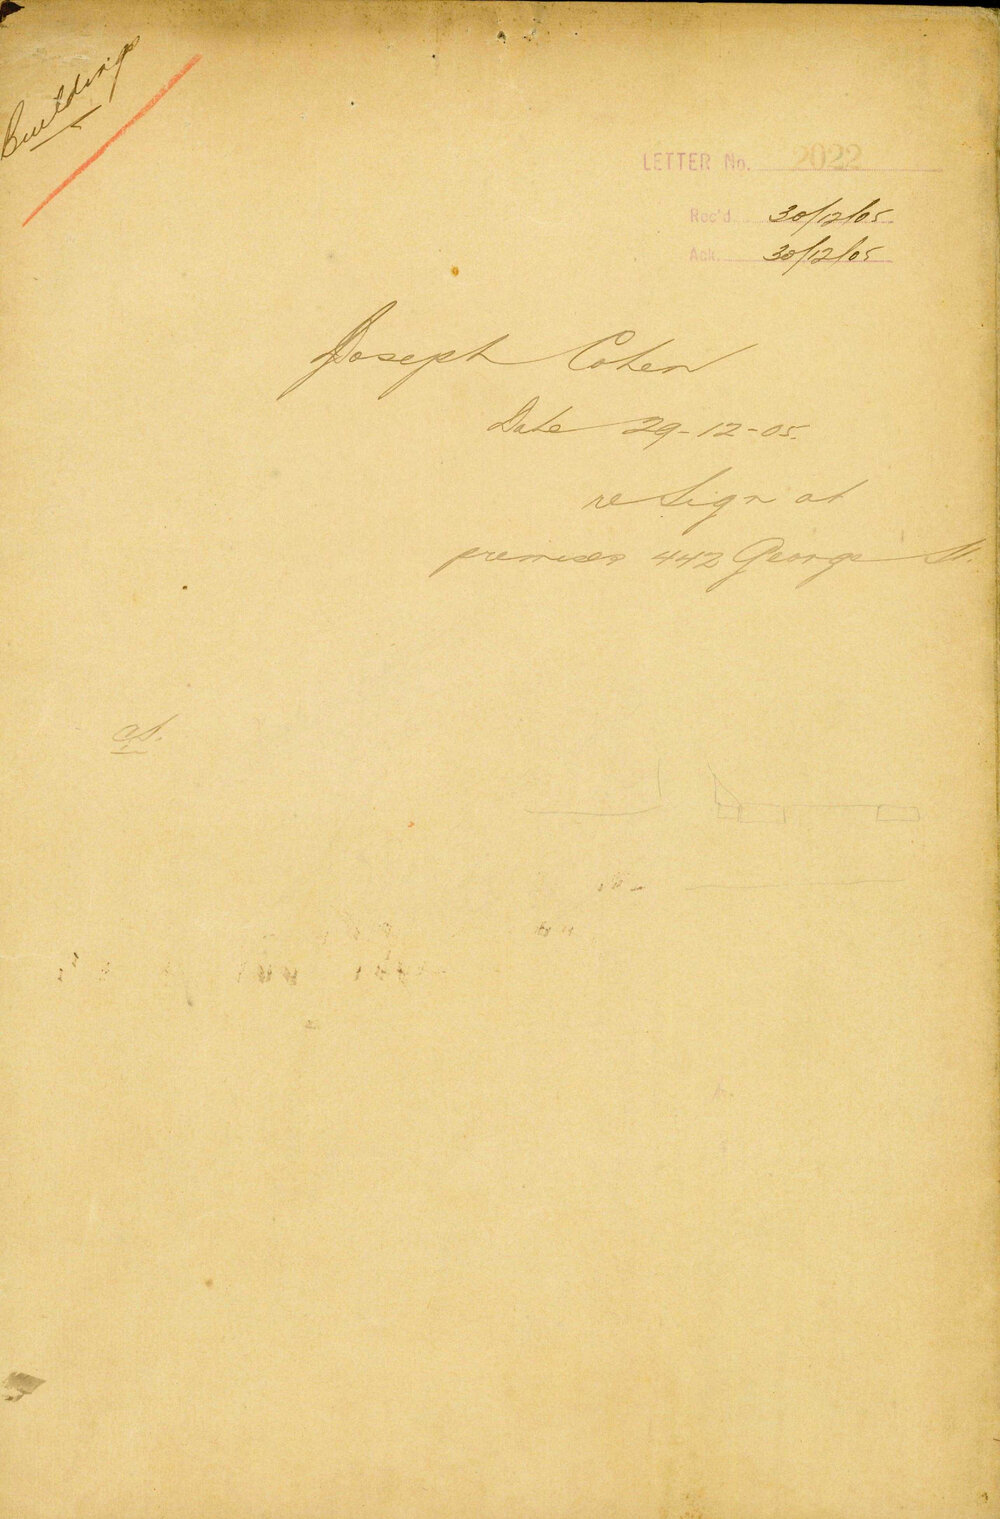 Buildings
LETTER No. 2022
Rec'd 30/12/05
Ack. 30/12/05
Joseph Cohen
Date 29-12-05.
re Sign at
premises 442 George St.